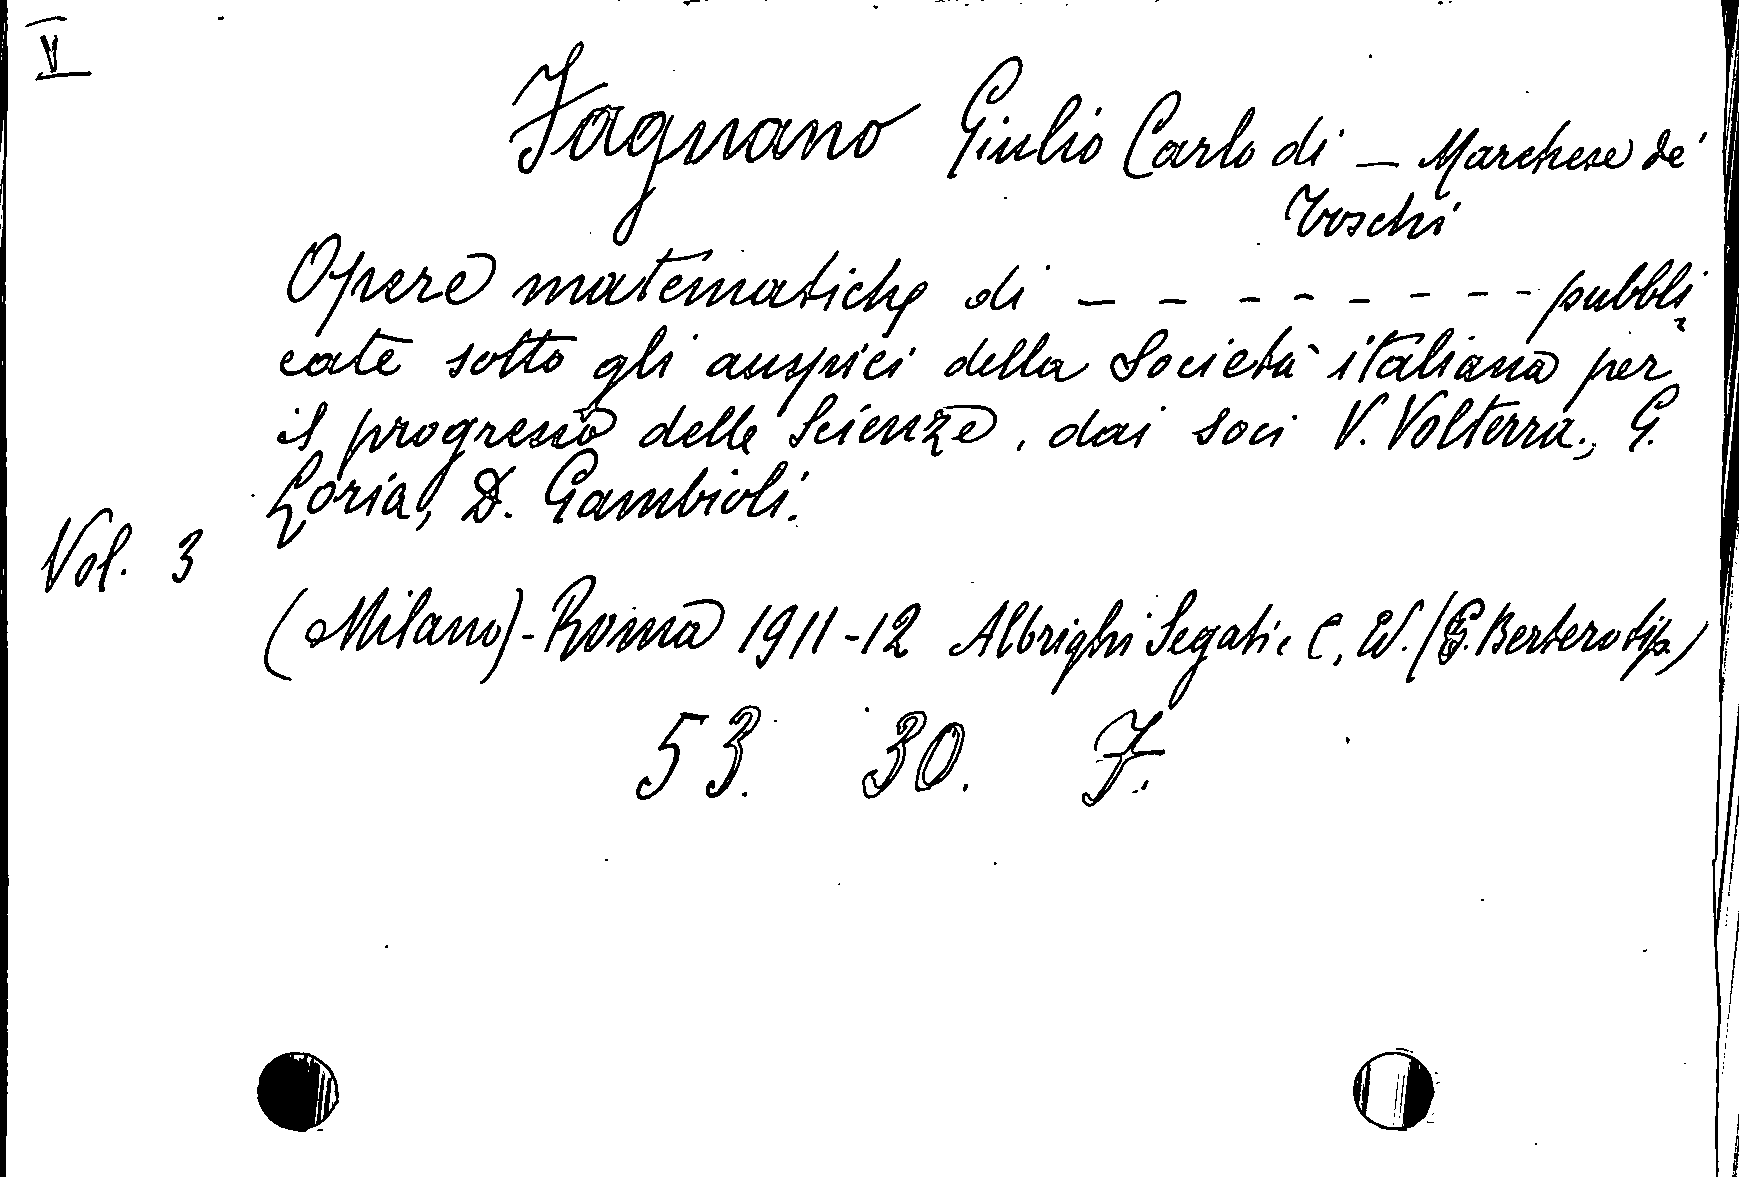 V
Fagnano Giulio Carlo di — Marchese de'
Toschi
Opere matematiche di — — — — — — — — pubbli
cate sotto gli auspici della Società italiana per
il progresso delle Scienze, dai soci V. Volterra., G.
Loria, D. Gambioli.
Vol. 3
(Milano) - Roma 1911-12 Albrighi Segati e C, W. (G. Bertero tip.)
53. 30. F.